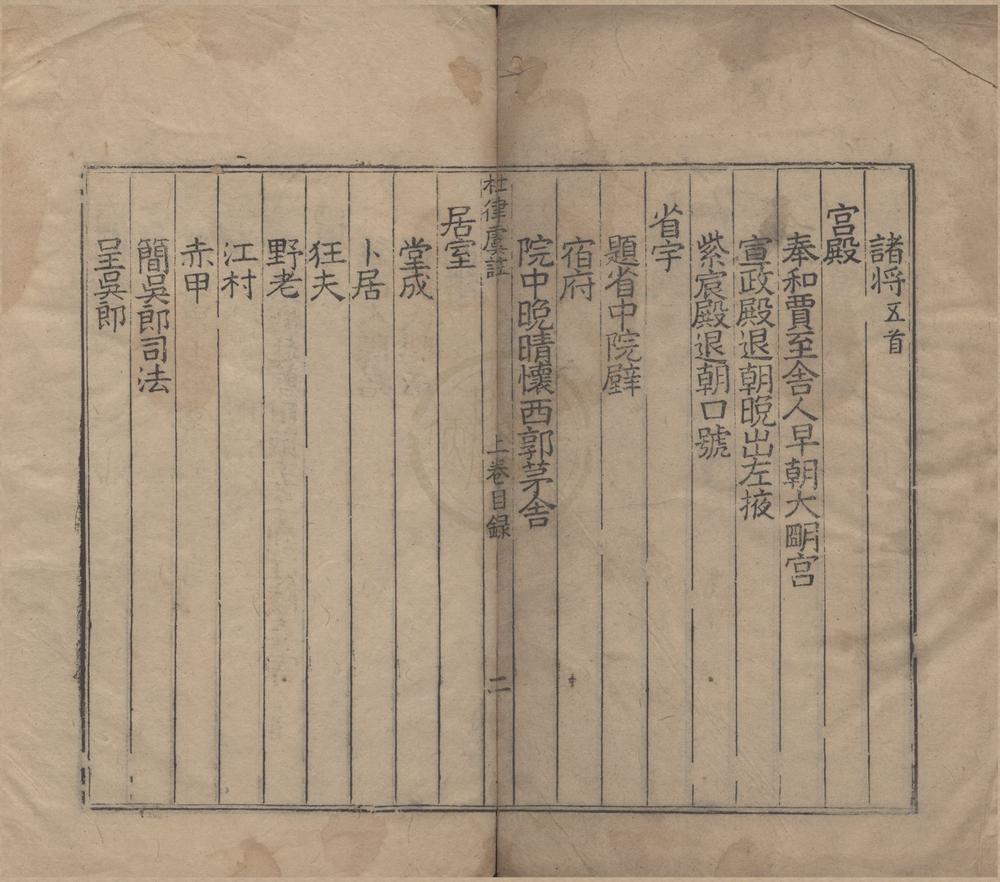 諸将五首
宫殿
奉和賈至舎人早朝大朙宫
宣政殿退朝晩出左掖
紫宸殿退朝口號
省宇
題省中院壁
宿府
院中晩晴懷西郭茅舎
杜律虞註 上卷目録 二
居室
堂成
卜居
狂夫
野老
江村
赤甲
簡吳郎司法
呈吳郎